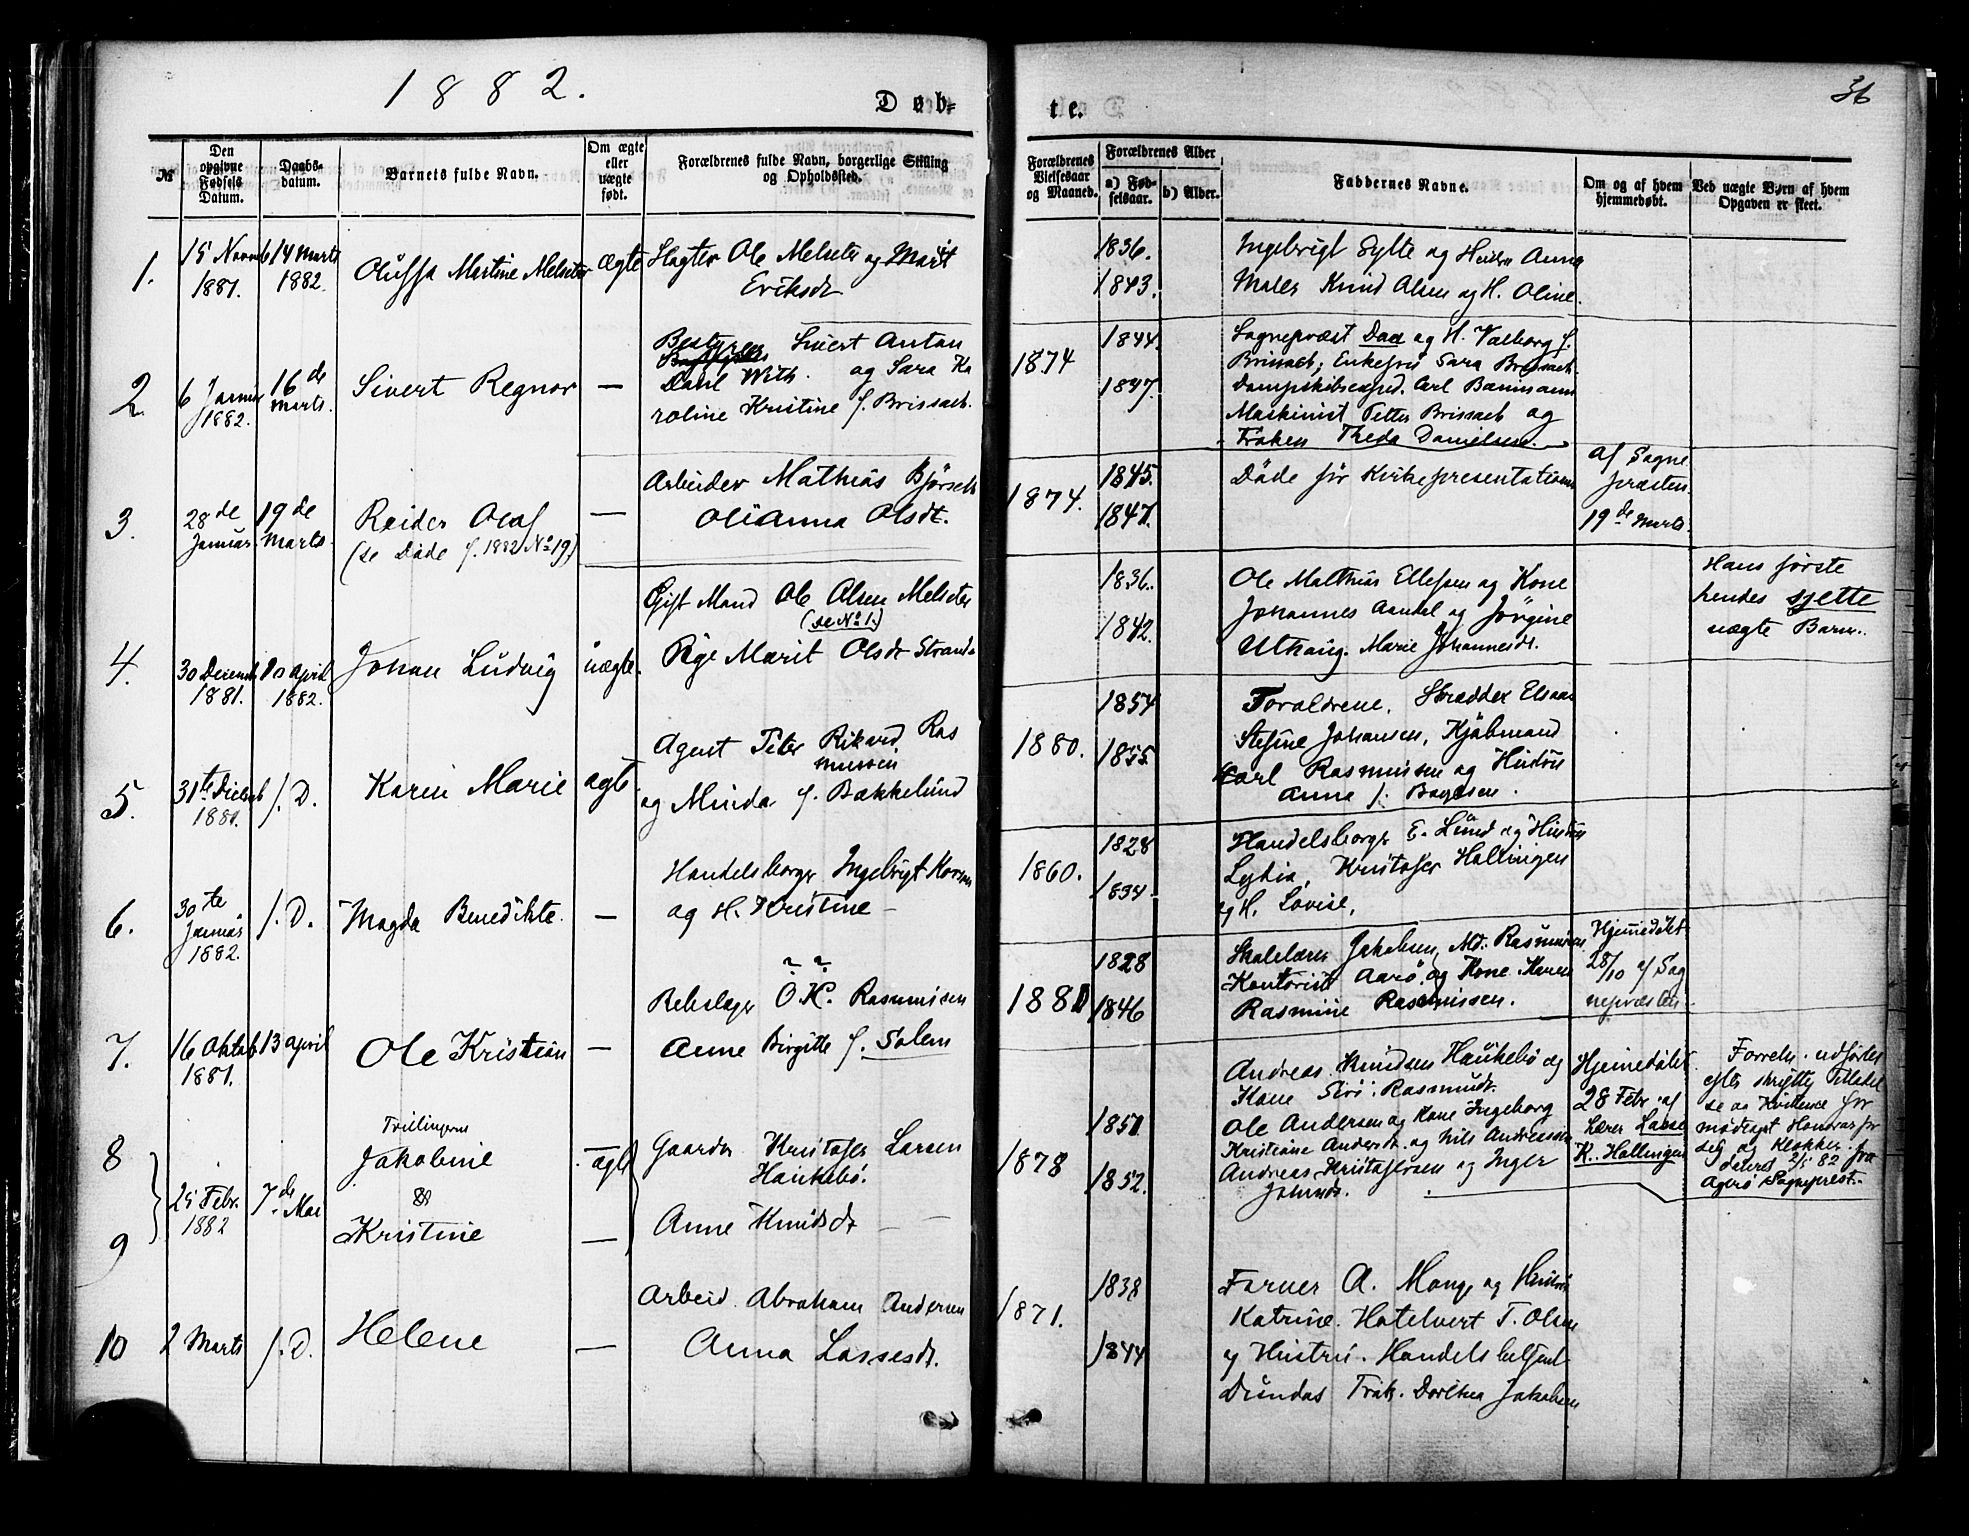 1882.
Døb-
te.
36
№
Den opgivne Fødsels Datum.
Daabs-datum.
Barnets fulde Navn.
Om ægte eller uægte født.
Forældrenes fulde Navn, borgerlige Stilling og Opholdssted.
Forældrenes Vielsesaar og Maaned.
Forældrenes Alder
a) Fødselsaar.
b) Alder.
Faddernes Navne.
Om og af hvem hjemmedøbt.
Ved uægte Børn af hvem Opgaven er skeet.
1.
15 Novmb 14 Marts
1881. 1882.
Oluffa Martine Melseter
ægte
Slagter Ole Melseter og Marit
Eriksdt
1836.
1843.
Ingebrigt Sylte og Hustru Anna
Maler Knud Olsen og H. Oline.
2.
6 Januar
1882.
16de
Marts.
Sivert Regnor
—
Bestyrer Sivert Anton
Dahl With. og Sara Ka
roline Kristine f. Brissach.
1874
1844.
1847.
Sognepræst Daa og H. Valborg f.
Brissach; Enkefru Sara Brissach.
Dampskibsexped. Carl Baumann
Maskinist Petter Brissach og
Frøken Theda Danielsen.
3.
28de
Januar.
19de
Marts.
Reidar Olaf
(se Døde f. 1882 No 19)
—
Arbeider Mathias Bjørseth
Olianna Olsdt.
1874.
1845.
1847.
Døde før Kirkepresentationen
af Sogne
præsten
19de Marts.
4.
30 Decemb
1881.
10 April
1882.
Johan Ludvig
uægte.
Gift Mand Ole Olsen Melseter
(se No 1.)
Pige Marit Olsdt Strand
1836.
1842.
Ole Matthias Ellefsen og Kone
Johannes Aandal og Jørgine
Uthaug. Marie Johannesdt.
Hans første
hendes sjette
uægte Barn.
5.
31te Decemb
1881.
f. D.
Karen Marie
ægte
Agent Peter Rikard Ras
mussen
og Minda f. Bakkelund
1880.
1854
1855.
Forældrene, Skrædder Elsaas
Stefine Johansen, Kjøbmand
Carl Rasmussen og Hustru
Anna f. Bagøsen.
6.
30te
Januar
1882.
f. D.
Magda Benedikte.
—
Handelsborger Ingebrigt Korsen
og H. Kristine
1860.
1828
1834.
Handelsborger E. Lund og Hustru
Lydia, Kristofer Hollingen
og H. Lovise.
7.
16 Oktob
1881.
13 April
Ole Kristian
—
Rebslager O. K. Rasmussen
Anne Birgitte f. Solem
1881
1828
1846
Skolelærer Jakobsen, Md. Rasmussen
Kontorist Aarø og Kone Karen
Rasmine Rasmussen.
Hjemmedøbt
28/10 af Sog
nepræsten
8
9
25 Febr.
1882
7de Mai
Tvillingerne
Jakobine
&
Kristine
ægte
—
Gaardbr Kristofer Larsen
Haukebø.
Anne Knudsdt
1878
1851
1852.
Andreas Knudsen Haukebø og
Kone Siri Rasmusdt.
Ole Andersen og Kone Ingeborg
Kristiane Andersdt. og Nils Andreassen
Andreas Kristofersen og Inger
Johnsdt.
Hjemmedøbt
28 Febr. af
Lærer Lasse
K. Hollingen
Forretn. udførtes
efter skriftlig Tilladel
se og Kvittence for
modtaget Honorar for
sig og Klokker.
dateret 2/5 82 fra
Agerø Sognepræst.
10
2 Marts
f. D.
Helene
—
Arbeid. Abraham Andersen
Anna Lassesdt.
1871.
1838
1844
Farver A. Monge og Hustru
Katrine. Hotelvert T. Olsen
og Hustru. Handelsbetjent
Dundas Frøk. Dorthea Jakobsen